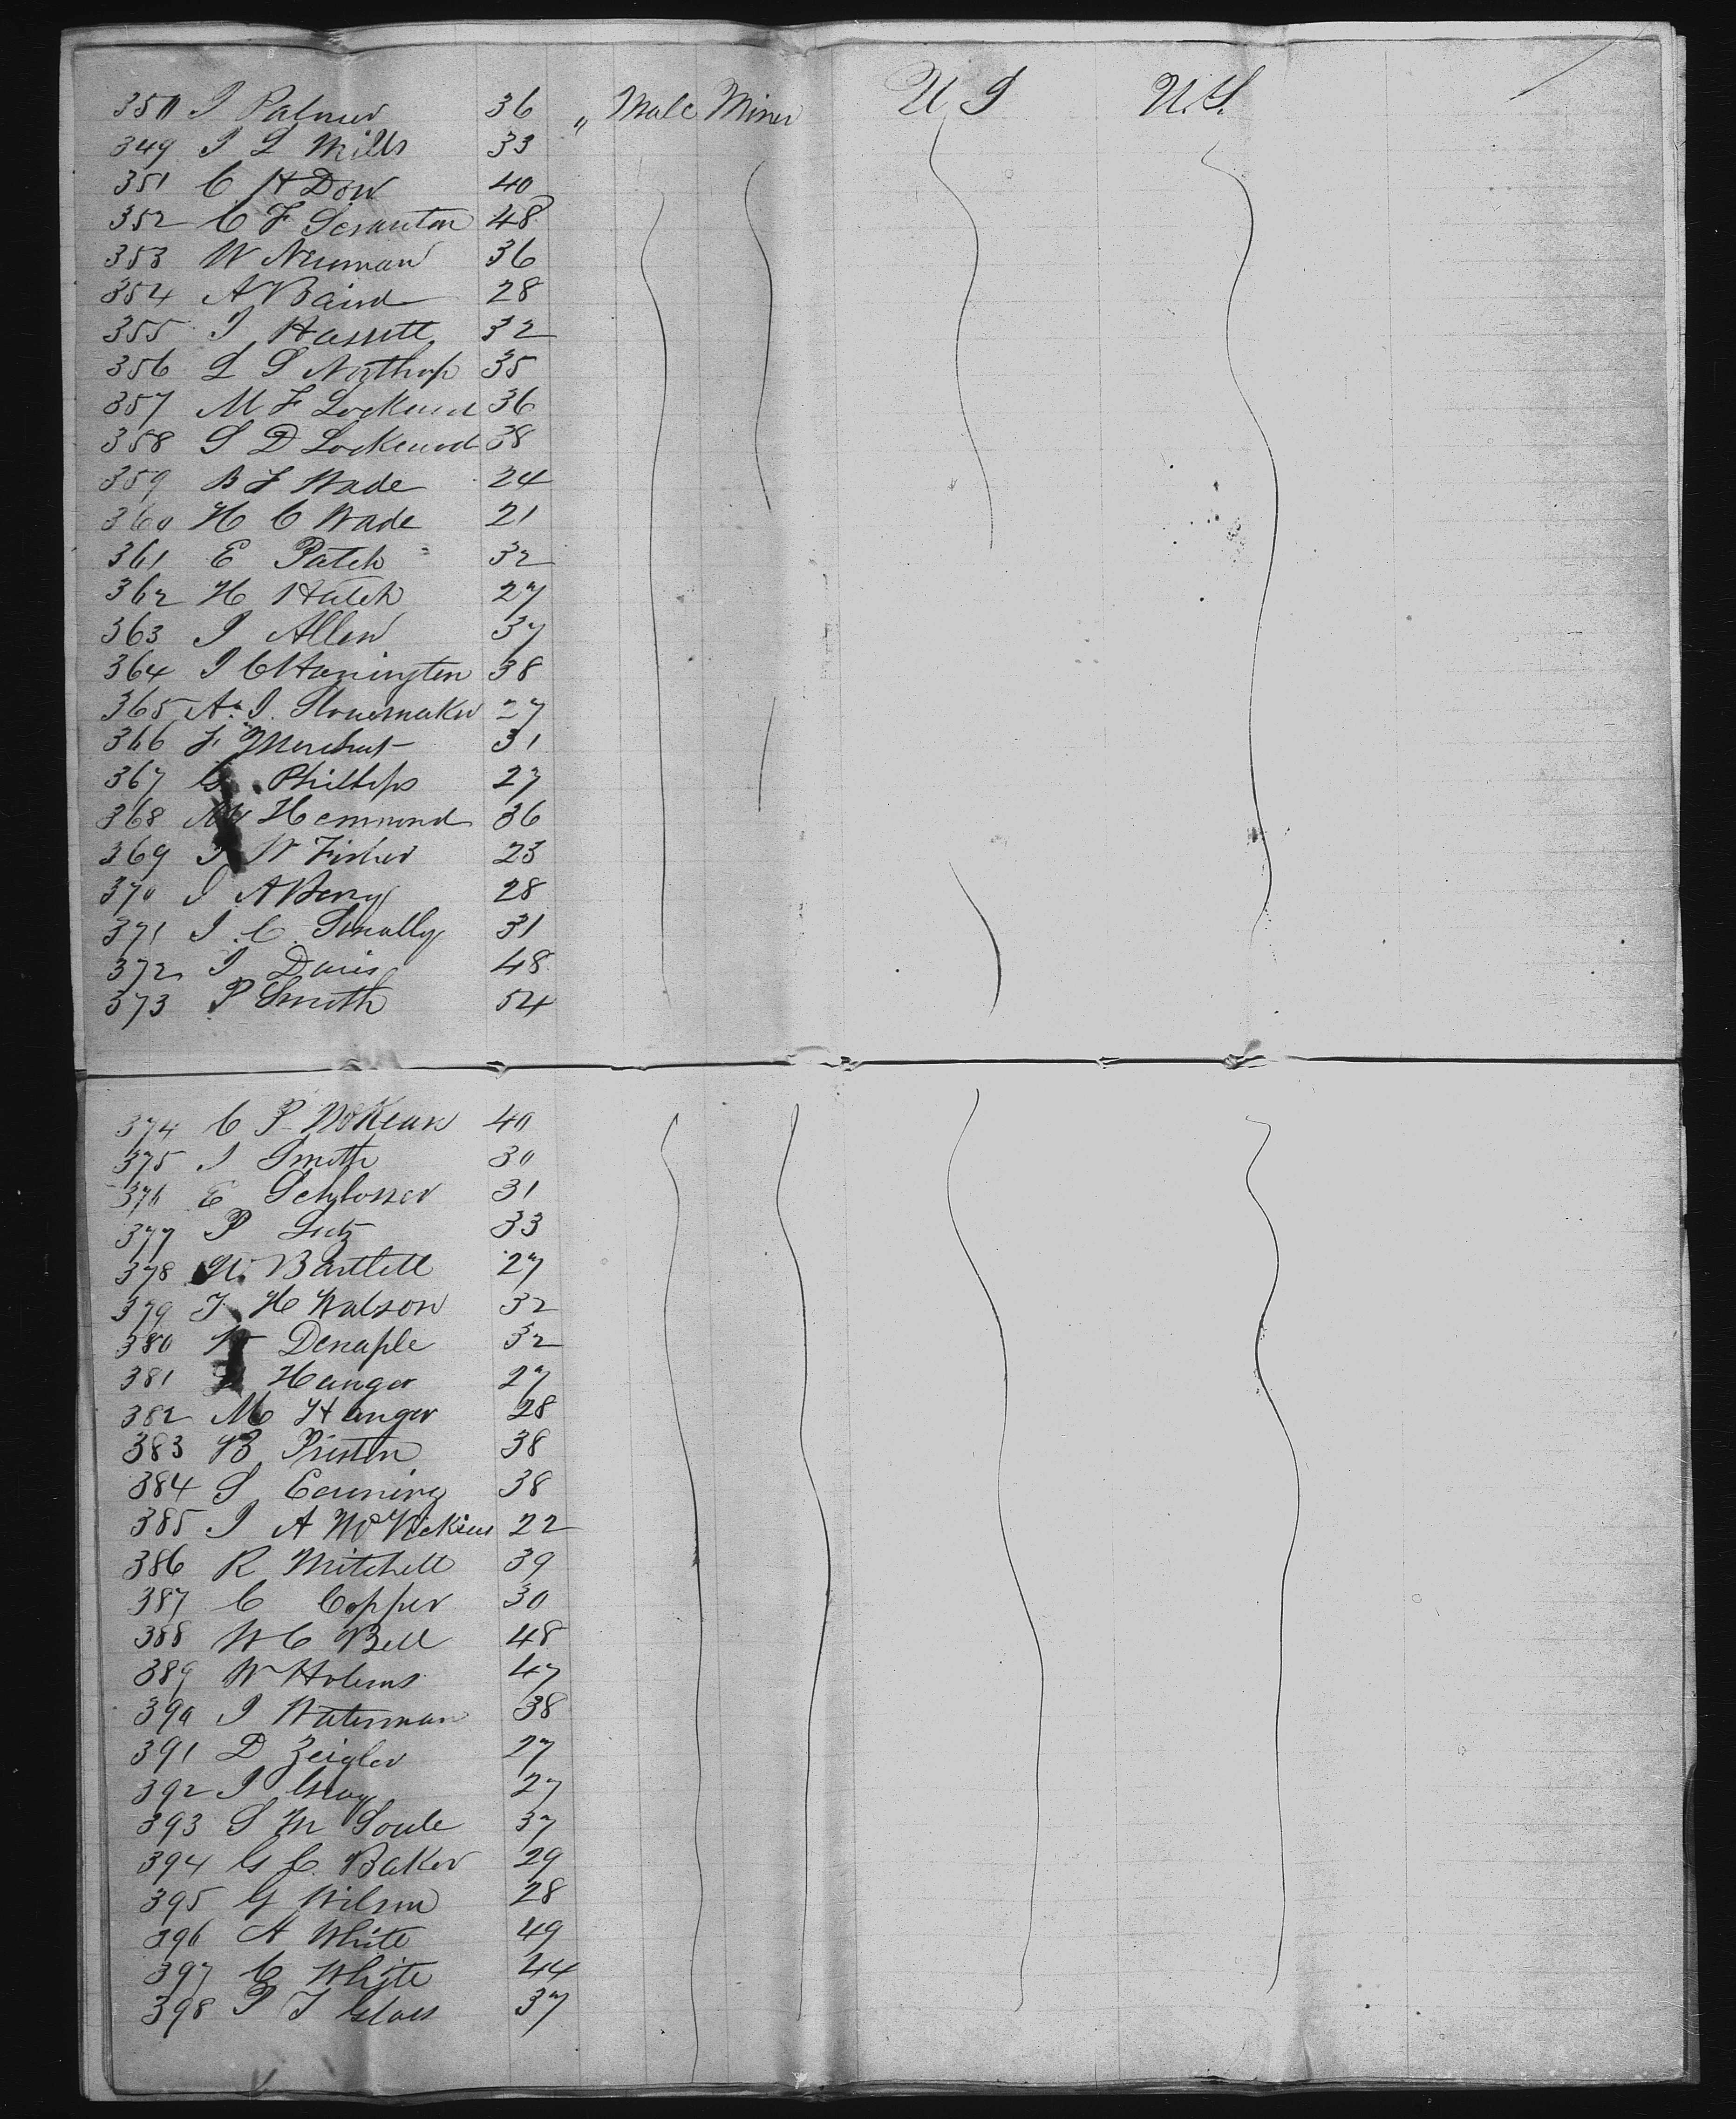 350 J Palmer 36 " Male Miner U S U.S.
349 J L Mills 33
351 C H Dow 40
352 C F Scranton 48
353 W Neuman 36
354 A Baird 28
355 J Hassett 32
356 L S Northup 35
357 M F Lockwood 36
358 S D Lockwood 38
359 B F Wade 24
360 H C Wade 21
361 E Patch 32
362 H Hatch 27
363 J Allen 37
364 J C Harrington 38
365 A. J. Stonemaker 27
366 F Merchant 31
367 G. Phillips 27
368 Hemmond 36
369 J W Fisher 23
370 J A Berry 28
371 J. C. Smally 31
372 J Davis 48
373 P Smith 54
374 C P McKean 40
375 J Smith 30
376 E Schlosser 31
377 P Lutz 33
378 Bartlett 27
379 J H Watson 32
380 Denaple 32
381 Hanger 27
382 M Hanger 28
383 B Preston 38
384 S 38
385 J A 22
386 R Mitchell 39
387 C Copper 30
388 W C Bell 48
389 W Holems 47
390 J Waterman 38
391 D Zeigler 27
392 J Gray 27
393 S M Soule 37
394 G C. Baker 29
395 G Wilson 28
396 A White 49
397 C White 44
398 P J Glass 37